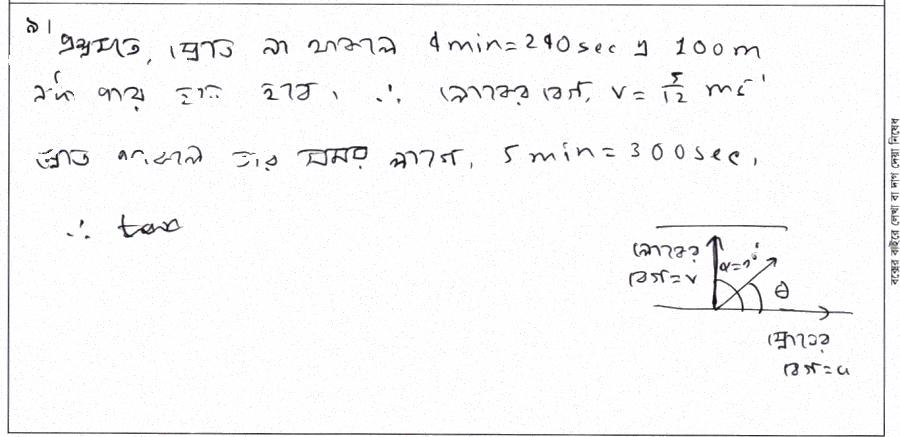 ৯।
প্রশ্নমতে, স্রোত না থাকলে 4 min = 240 sec এ 100 m
নদী পার হতে হবে। ∴ লোকের বেগ, v = 5/12 ms⁻¹
স্রোত থাকলে তার সময় লাগে, 5 min = 300 sec,
∴ tan
লোকের
বেগ = v
α = ?
θ
স্রোতের
বেগ = u
বক্সের বাইরে লেখা বা দাগ দেয়া নিষেধ